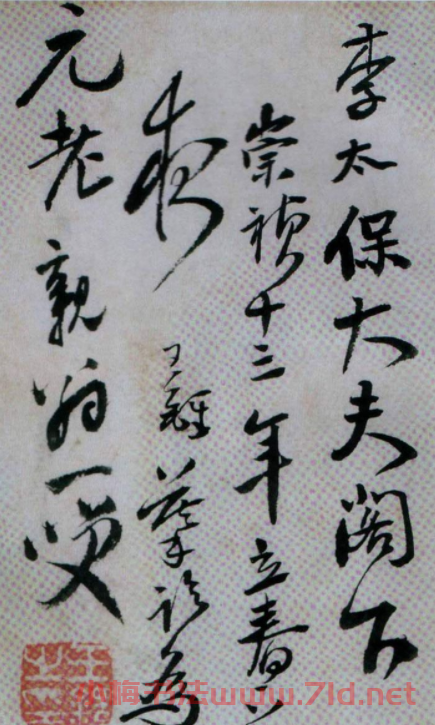 李太保大夫閣下
崇禎十三年立春
夜 王鐸 摹 為
元老親翁一咲
小梅书法www.7ld.net